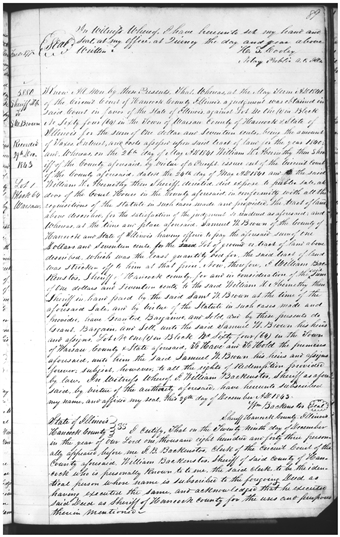 89
In Witness Whereof, I have hereunto set my hand and
Seal, at my office, at Quincy the day and year above
Written
(Seal)
Notary Public
Know All Men by these Presents, That Whereas at the May Term AD 1841
of the Circuit Court of Hancock County Illinois a judgment was obtained in
said Court in favor of the State of Illinois against Lot No One Block
No Sixty four (64) in the Town of Warsaw County of Hancock & State of
Illinois for the sum of One dollar and Seventeen cents, being the amount
of Taxes Interest, and costs
and Whereas on the 24th day of May AD 1841 William H. Abernethy then Sher-
iff of the County aforesaid, by virtue of a Precept issued out of the Circuit Court
of the County aforesaid, dated the 24th day of May AD 1841 the said
William H. Abernethy then Sheriff, decided did expose to public sale, at the
door of the Court House in the County aforesaid in conformity with all the
requisitions of the Statute in such cases made and provided, the tract of land
above described, for the satisfaction of the judgment so rendered as aforesaid, and
Whereas at the time and place aforesaid Samuel W. Brown of the County of
Hancock and State of Illinois having offered to pay the aforesaid sum of One
Dollar and Seventeen cents for the said Lot of ground or tract of land above
described, which was the least quantity bid for, the said tract of land
was stricken off to him at that price; Now, Therefore, I William Back-
enstos, Sheriff of Hancock county, for and in consideration of the Sum
of One dollar and Seventeen cents to the said William H. Abernethy then
Sheriff in hand paid by the said Saml W. Brown at the time of the
aforesaid Sale and by virtue of the Statute in such cases made and
provided, have Granted, Bargained, and Sold, and by these presents do
Grant, Bargain, and Sell, unto the said Samuel W. Brown his heirs
and assigns, Lot No One (1) in Block No Sixty four (64) in the Town
of Warsaw County & State aforesaid, To Have and To Hold the premises
aforesaid, unto him the said Samuel W. Brown his heirs and assigns
forever, Subject, however, to all the rights of Redemption provided
by law. In Witness Whereof I William Backenstos, Sheriff as afore-
said, by virtue of the authority aforesaid, have hereunto subscribed
my name, and affixed my seal, this 29th day of November AD 1843.
Wm Backenstos (Seal)
Sheriff Hancock County Illinois
State of Illinois
Hancock County
I certify, That on the Twenty Ninth day of November
in the year of our Lord one thousand eight hundred and forty three person-
ally appeared before me J. B. Backenstos, Clerk of the Circuit Court of the
County aforesaid William Backenstos Sheriff of said County of Han-
cock who is personally known to me, the said clerk, to be the iden-
tical person whose name is subscribed to the foregoing Deed as
having executed the same, and acknowledged that he executed
said Deed as Sheriff of Hancock County for the uses and purposes
therein mentioned
Sheriff
S. W. Brown
Recorded
1843
Lot 1
Block 64
Warsaw